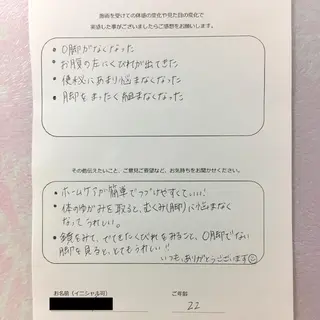 施術を受けての体感の変化や見た目の変化で
実感した事がございましたらご感想をお願いします。
• O脚がなくなった
• お腹の左にくびれが出てきた
• 便秘にあまり悩まなくなった
• 脚をまったく組まなくなった
その他伝えたいこと、ご意見ご要望など、お気持ちをお聞かせください。
• ホームケアが簡単でつづけやすくていい!
• 体のゆがみを取ると、むくみ(脚)に悩まなく
なってうれしい。
• 鏡をみて、でてきたくびれをみること、O脚でない
脚を見ると、とてもうれしい!!
いつも、ありがとうございます
お名前（イニシャル可）
ご年齢
22